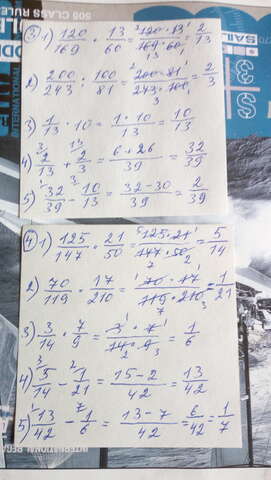 ③ 1) 120/169 · 13/60 = 120·13/169·60 = 2/13
2) 200/243 : 100/81 = 200·81/243·100 = 2/3
3) 1/13 · 10 = 1·10/13 = 10/13
4) 2/13 + 2/3 = 6+26/39 = 32/39
5) 32/39 - 10/13 = 32-30/39 = 2/39
④ 1) 125/147 · 21/50 = 125·21/147·50 = 5/14
2) 70/119 · 17/210 = 70·17/119·210 = 1/21
3) 3/14 · 7/9 = 3·7/14·9 = 1/6
4) 5/14 - 1/21 = 15-2/42 = 13/42
5) 13/42 - 1/6 = 13-7/42 = 6/42 = 1/7
SOS CLASS RULE
INTERNATIONAL
SAIL